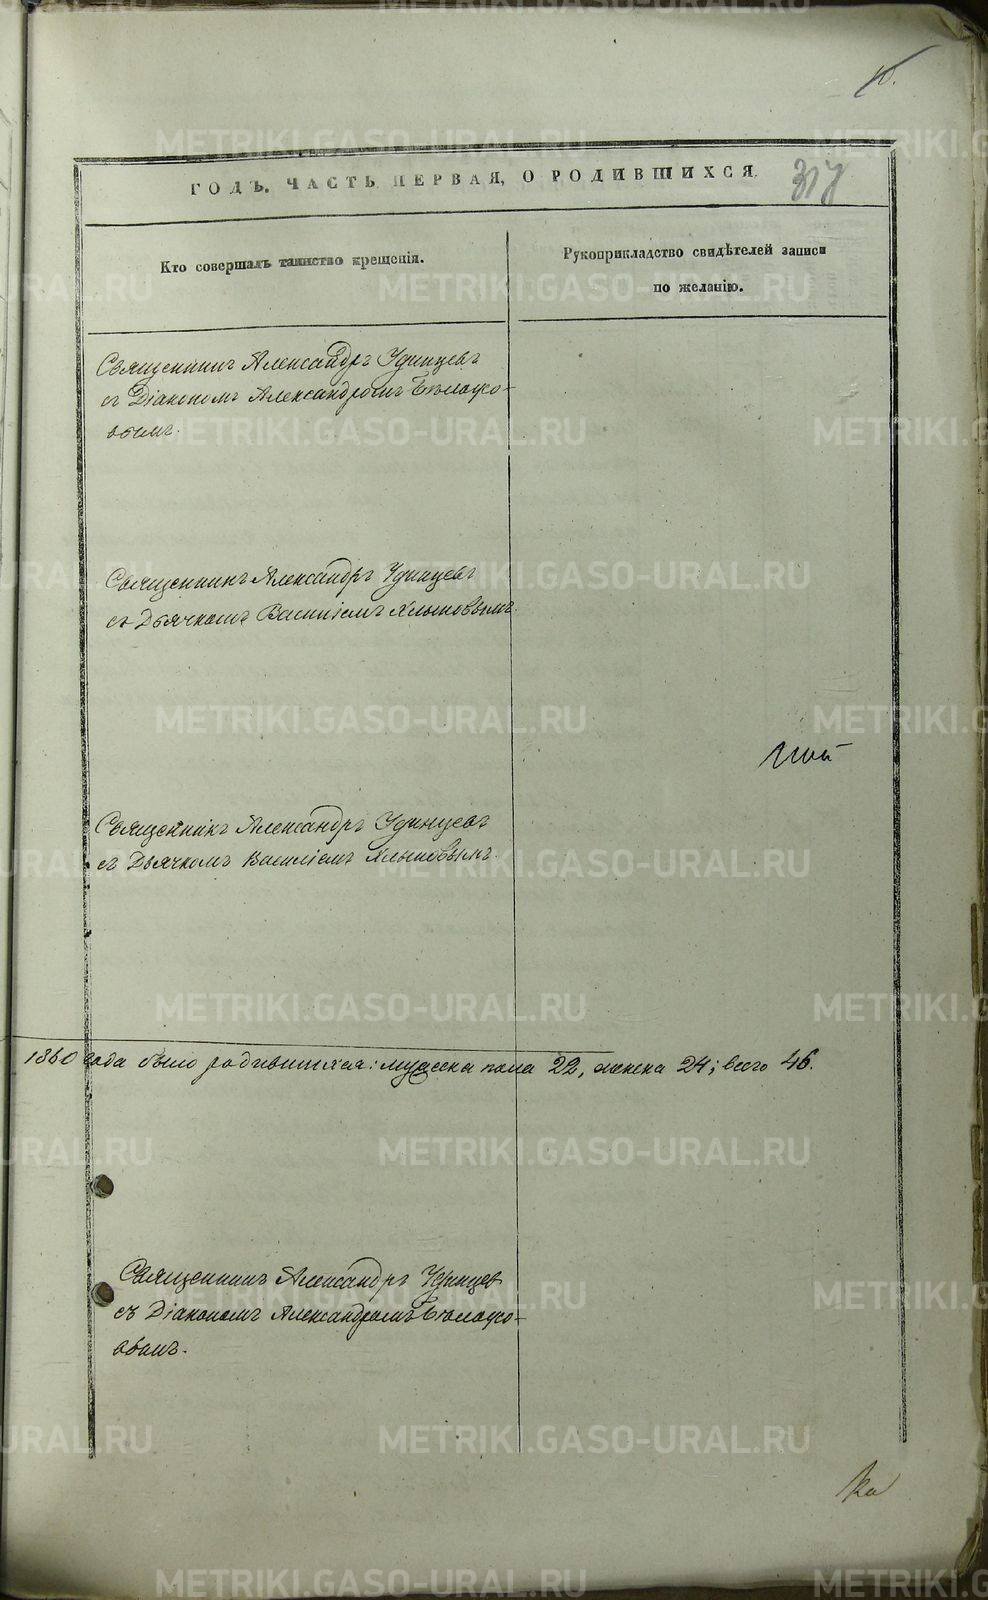 10.
ГОДЪ. ЧАСТЬ ПЕРВАЯ, О РОДИВШИХСЯ.
317
Кто совершалъ таинство крещенія.
Рукоприкладство свидѣтелей записи
по желанію.
Священникъ Александръ Удинцевъ
съ Діакономъ Александромъ
вымъ.
Священникъ Александръ Удинцевъ
съ Дьячкомъ Василіемъ Хлыновымъ.
Священникъ Александръ Удинцевъ
съ Дьячкомъ Василіемъ Хлыновымъ.
1860 года было родившихся: мужеска пола 22, женска 24; всего 46.
Священникъ Александръ Удинцев
съ Діакономъ Александромъ
вымъ.
METRIKI.GASO-URAL.RU